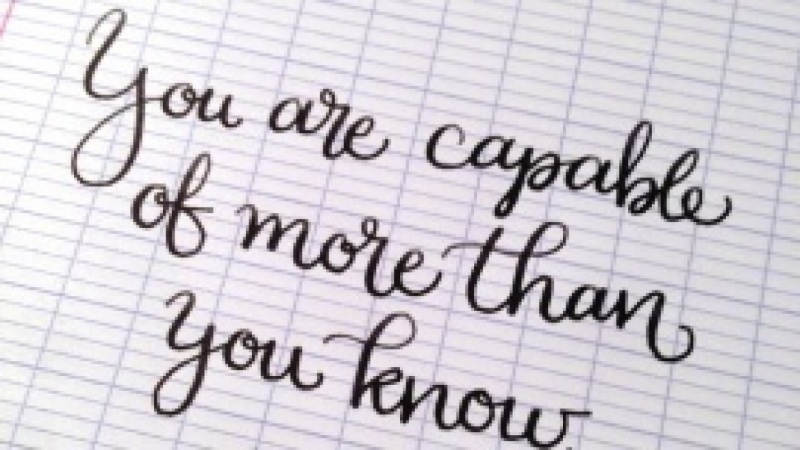 You are capable
of more than
you know.